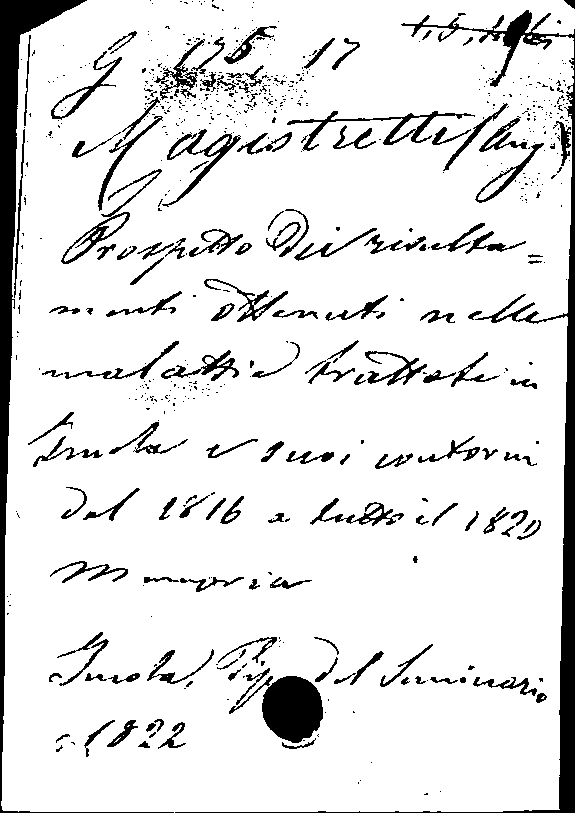 G. 175, 17
Magistretti (Aug.)
Prospetto dei risulta=
menti ottenuti nelle
malattie trattate in
Imola e suoi contorni
dal 1816 a tutto il 1820
Memoria
Imola, Tip. del Seminario
1822